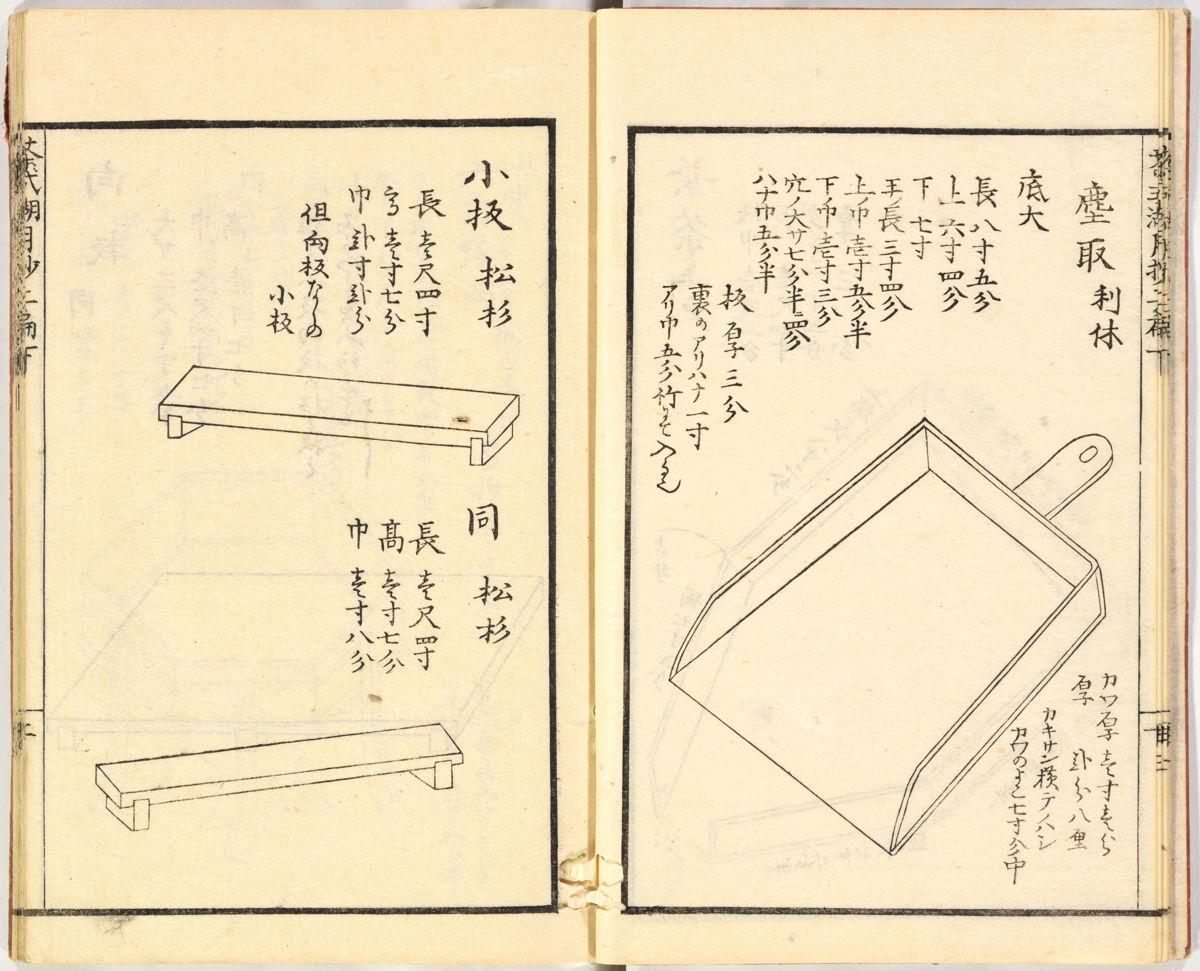 塵取 利休
底大
長八寸五分
上六寸四分
下七寸
手ノ長三寸四分
上ノ巾壱寸五分半
下ノ巾壱寸三分
穴ノ大サ七分半ニ四分
ハナ巾五分半
板厚三分
裏のアリハナ一寸
アリ巾五分竹にて入るゝ
カワ厚壱寸壱分
厚 弐分八厘
カキサシ横テノハシ
カワのよこ七寸分中
小板 松杉
長 壱尺四寸
高 壱寸七分
巾 弐寸弐分
但向板ならの
小板
同 松杉
長 壱尺四寸
高 壱寸七分
巾 壱寸八分